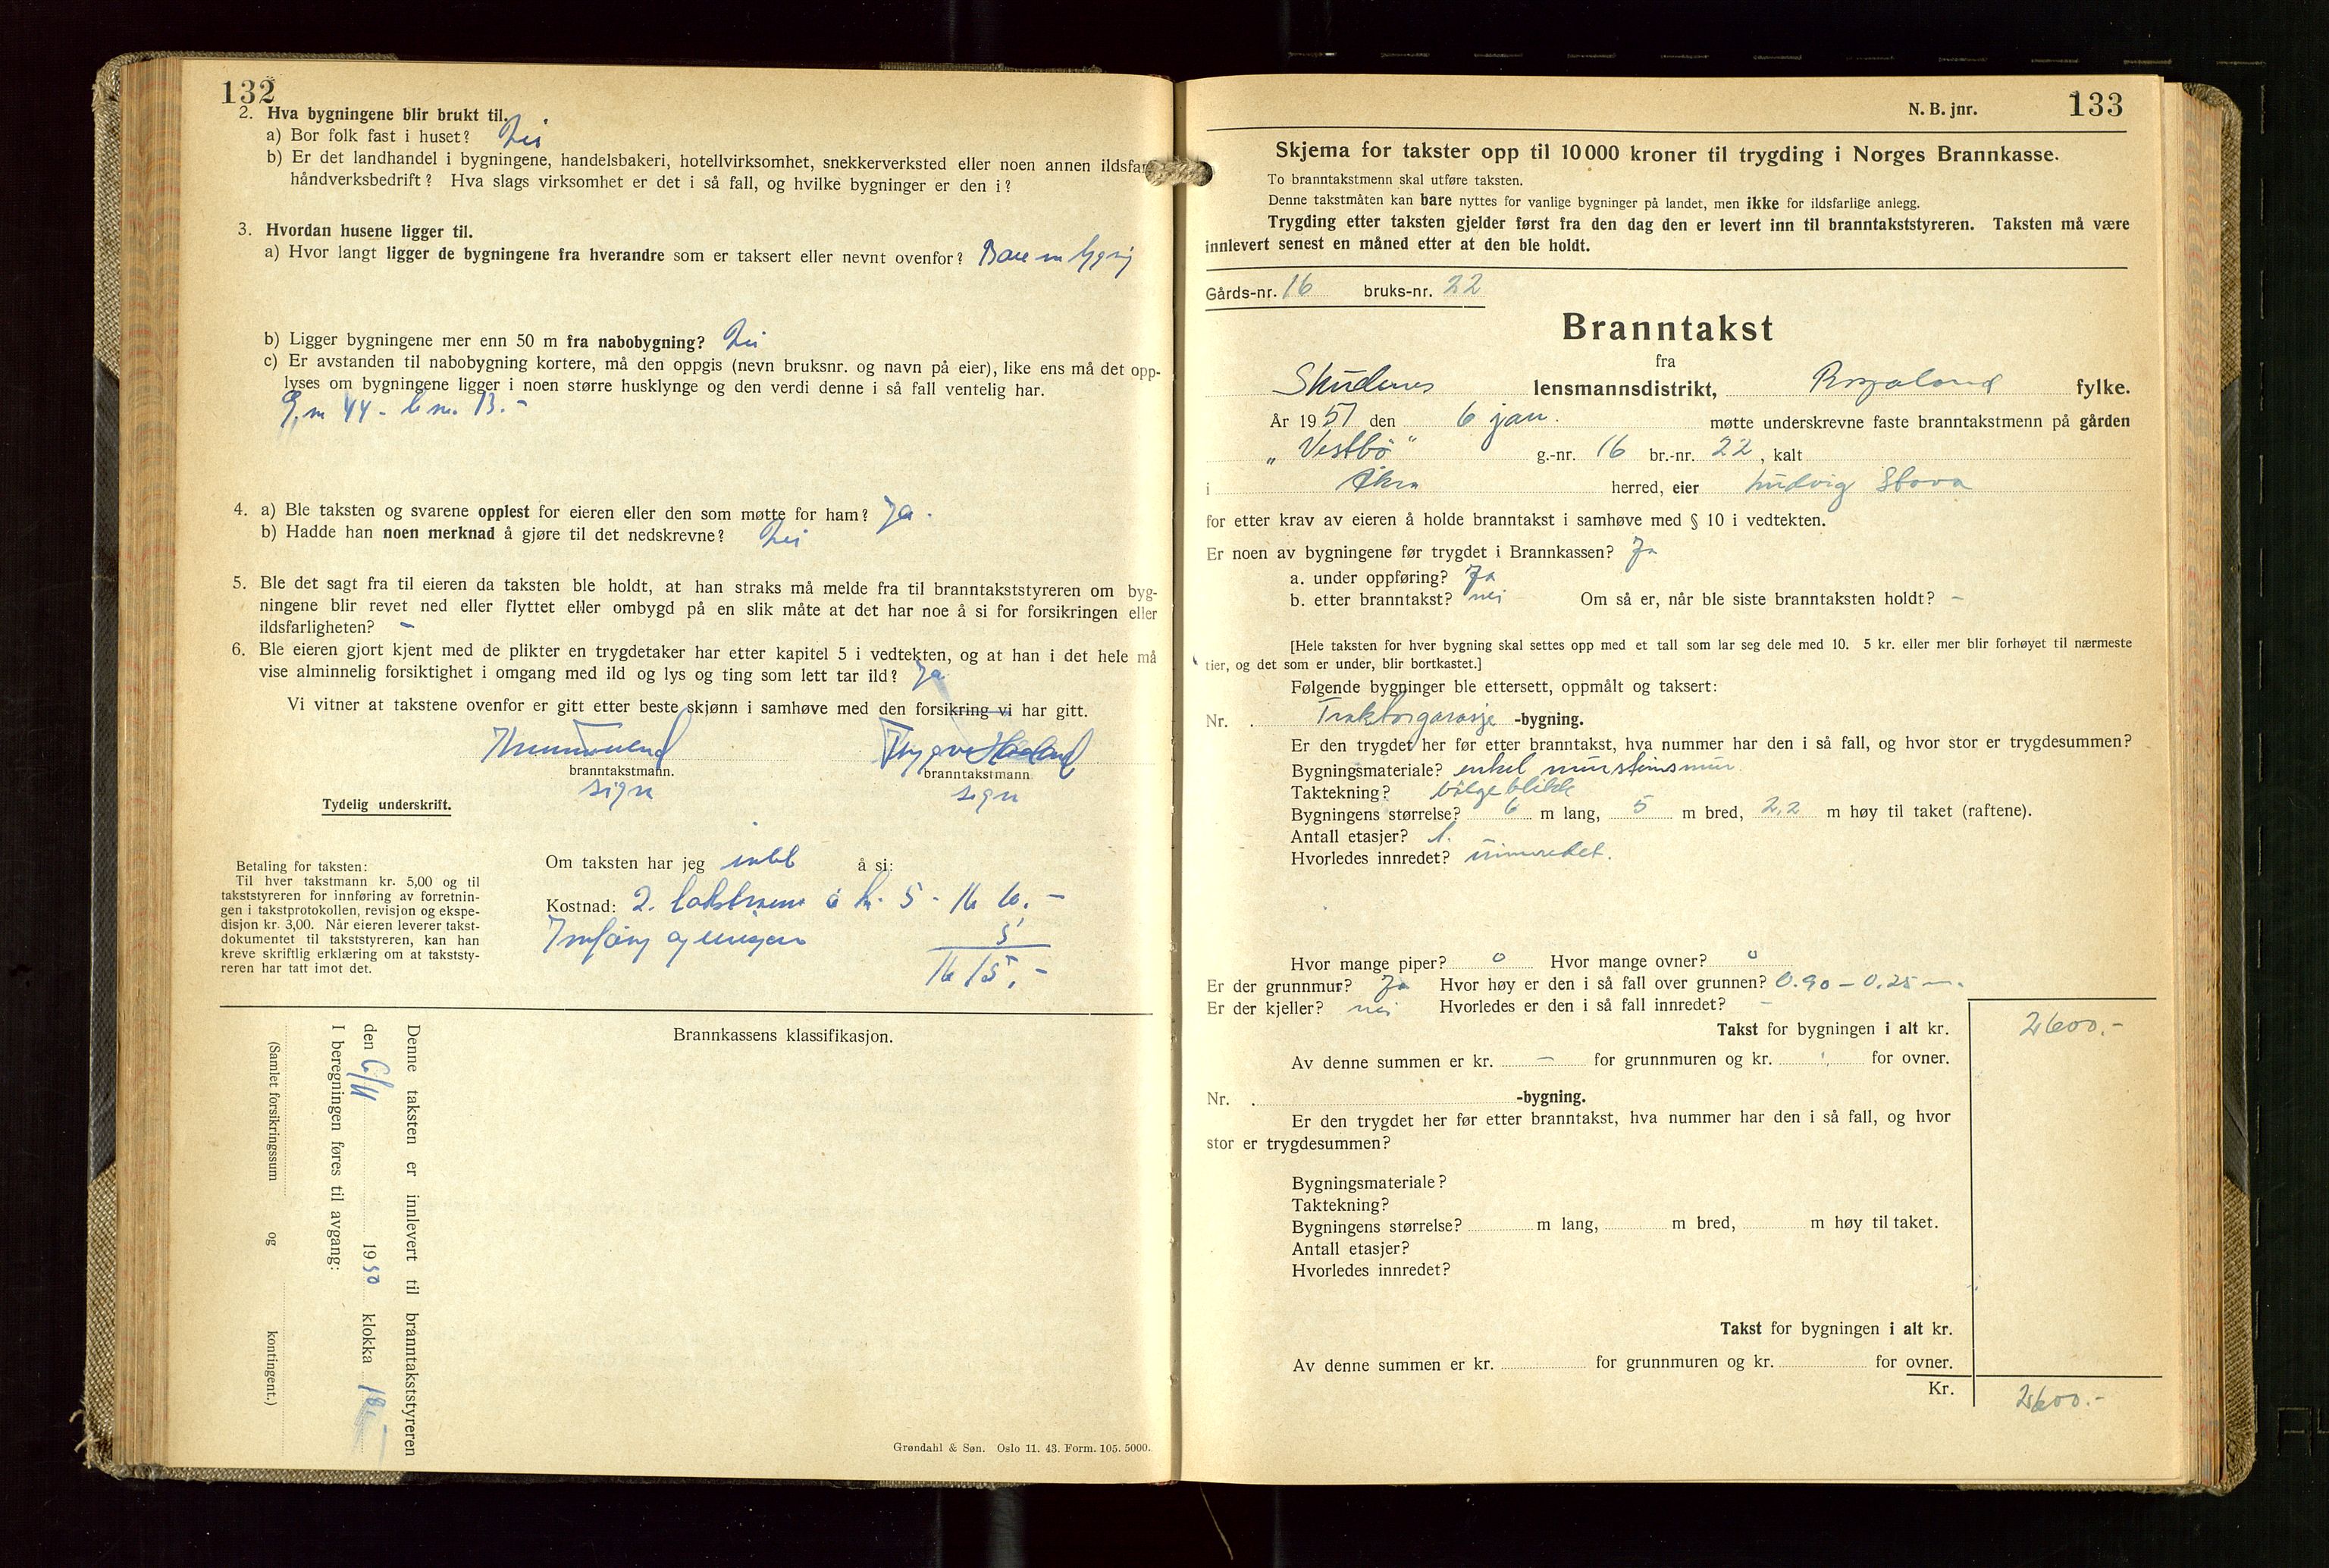 132
2. Hva bygningene blir brukt til.
a) Bor folk fast i huset? Nei
b) Er det landhandel i bygningene, handelsbakeri, hotellvirksomhet, snekkerverksted eller noen annen ildsfar
håndverksbedrift? Hva slags virksomhet er det i så fall, og hvilke bygninger er den i?
3. Hvordan husene ligger til.
a) Hvor langt ligger de bygningene fra hverandre som er taksert eller nevnt ovenfor? Bare en bygning
b) Ligger bygningene mer enn 50 m fra nabobygning? Nei
c) Er avstanden til nabobygning kortere, må den oppgis (nevn bruksnr. og navn på eier), like ens må det opp-
lyses om bygningene ligger i noen større husklynge og den verdi denne i så fall ventelig har.
G.nr 44 - br.nr. 13. -
4. a) Ble taksten og svarene opplest for eieren eller den som møtte for ham? Ja.
b) Hadde han noen merknad å gjøre til det nedskrevne? Nei
5. Ble det sagt fra til eieren da taksten ble holdt, at han straks må melde fra til branntakststyreren om byg-
ningene blir revet ned eller flyttet eller ombygd på en slik måte at det har noe å si for forsikringen eller
ildsfarligheten? -
6. Ble eieren gjort kjent med de plikter en trygdetaker har etter kapitel 5 i vedtekten, og at han i det hele må
vise alminnelig forsiktighet i omgang med ild og lys og ting som lett tar ild? Ja
Vi vitner at takstene ovenfor er gitt etter beste skjønn i samhøve med den forsikring vi har gitt.
Trygve
branntakstmann. branntakstmann
sign sign
Tydelig underskrift.
Betaling for taksten:
Til hver takstmann kr. 5,00 og til
takststyreren for innføring av forretnin-
gen i takstprotokollen, revisjon og ekspe-
disjon kr. 3,00. Når eieren leverer takst-
dokumentet til takststyreren, kan han
kreve skriftlig erklæring om at takststy-
reren har tatt imot det.
Om taksten har jeg intet å si:
Kostnad: 2. takstmenn à kr. 5 - kr 10. -
5
kr 15. -
Brannkassens klassifikasjon.
Denne taksten er innlevert til branntakststyreren
den 6/11 1950 klokka 18.-
I beregningen føres til avgang:
(Samlet forsikringssum og kontingent.)
Grøndahl & Søn. Oslo 11. 43. Form. 105. 5000.
N. B. jnr. 133
Skjema for takster opp til 10 000 kroner til trygding i Norges Brannkasse.
To branntakstmenn skal utføre taksten.
Denne takstmåten kan bare nyttes for vanlige bygninger på landet, men ikke for ildsfarlige anlegg.
Trygding etter taksten gjelder først fra den dag den er levert inn til branntakststyreren. Taksten må være
innlevert senest en måned etter at den ble holdt.
Gårds-nr. 16 bruks-nr. 22
Branntakst
fra
Skudenes lensmannsdistrikt, Rogaland fylke.
År 1951 den 6 jan. møtte underskrevne faste branntakstmenn på gården
„Vestbö“ g.-nr. 16 br.-nr. 22, kalt
i Åkra herred, eier Ludvig Stava
for etter krav av eieren å holde branntakst i samhøve med § 10 i vedtekten.
Er noen av bygningene før trygdet i Brannkassen? Ja
a. under oppføring? Ja
b. etter branntakst? nei Om så er, når ble siste branntaksten holdt? -
[Hele taksten for hver bygning skal settes opp med et tall som lar seg dele med 10. 5 kr. eller mer blir forhøyet til nærmeste
tier, og det som er under, blir bortkastet.]
Følgende bygninger ble ettersett, oppmålt og taksert:
Nr. . Traktorgarasje -bygning.
Er den trygdet her før etter branntakst, hva nummer har den i så fall, og hvor stor er trygdesummen?
Bygningsmateriale? enkel mursteinsmur
Taktekning? bölgeblikk
Bygningens størrelse? 6 m lang, 5 m bred, 2,2 m høy til taket (raftene).
Antall etasjer? 1.
Hvorledes innredet? uinnredet.
Hvor mange piper? 0 Hvor mange ovner? 0
Er der grunnmur? Ja Hvor høy er den i så fall over grunnen? 0.90 - 0.25 m.
Er der kjeller? nei Hvorledes er den i så fall innredet? -
Takst for bygningen i alt kr. 2600.-
Av denne summen er kr. - for grunnmuren og kr. for ovner.
Nr. . -bygning.
Er den trygdet her før etter branntakst, hva nummer har den i så fall, og hvor
stor er trygdesummen?
Bygningsmateriale?
Taktekning?
Bygningens størrelse? m lang, m bred, m høy til taket.
Antall etasjer?
Hvorledes innredet?
Takst for bygningen i alt kr.
Av denne summen er kr. for grunnmuren og kr. for ovner.
Kr. 2600.-